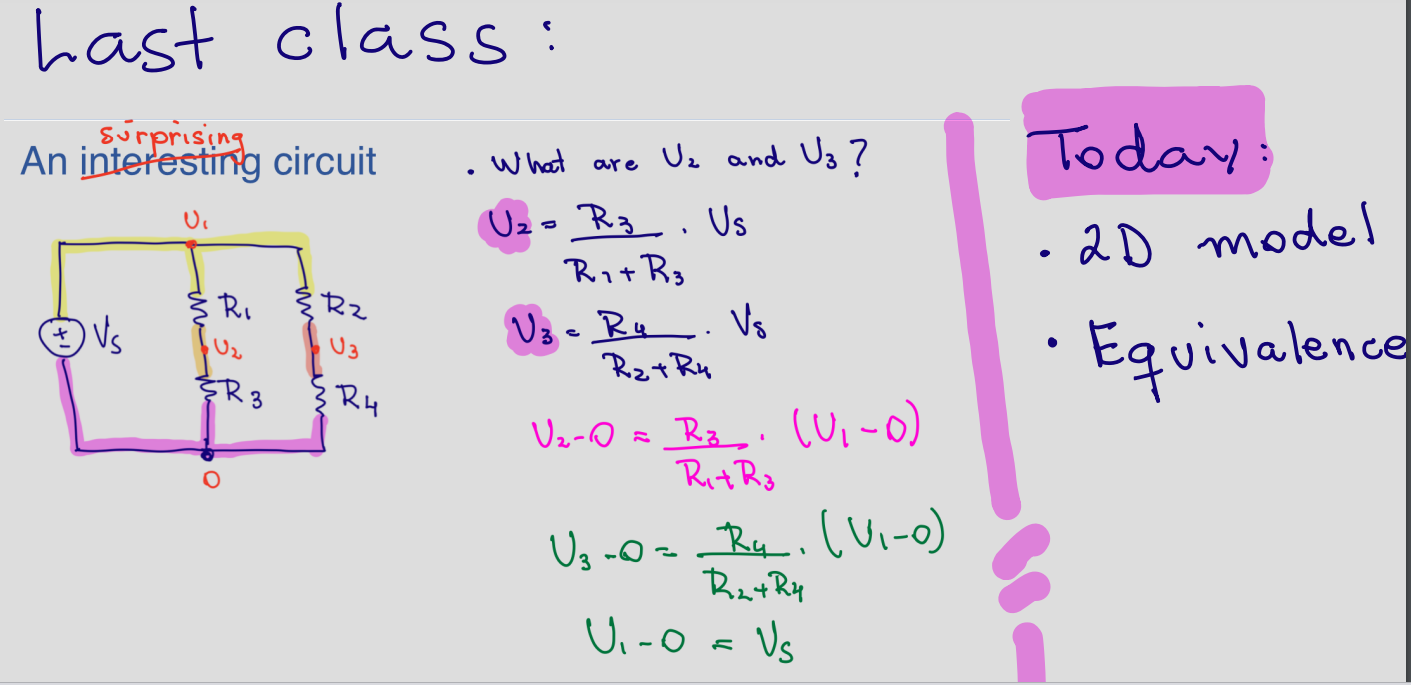 Last class:
surprising
An interesting circuit
U₁
Vs
R₁
R₂
U₂
U₃
R₃
R₄
0
. What are U₂ and U₃?
U₂ = R₃ / R₁ + R₃ . Us
U₃ = R₄ / R₂ + R₄ . Vs
U₂-0 = R₃ / R₁+R₃ . (U₁-0)
U₃-0 = R₄ / R₂+R₄ . (U₁-0)
U₁-0 = Vs
Today:
· 2D model
· Equivalence